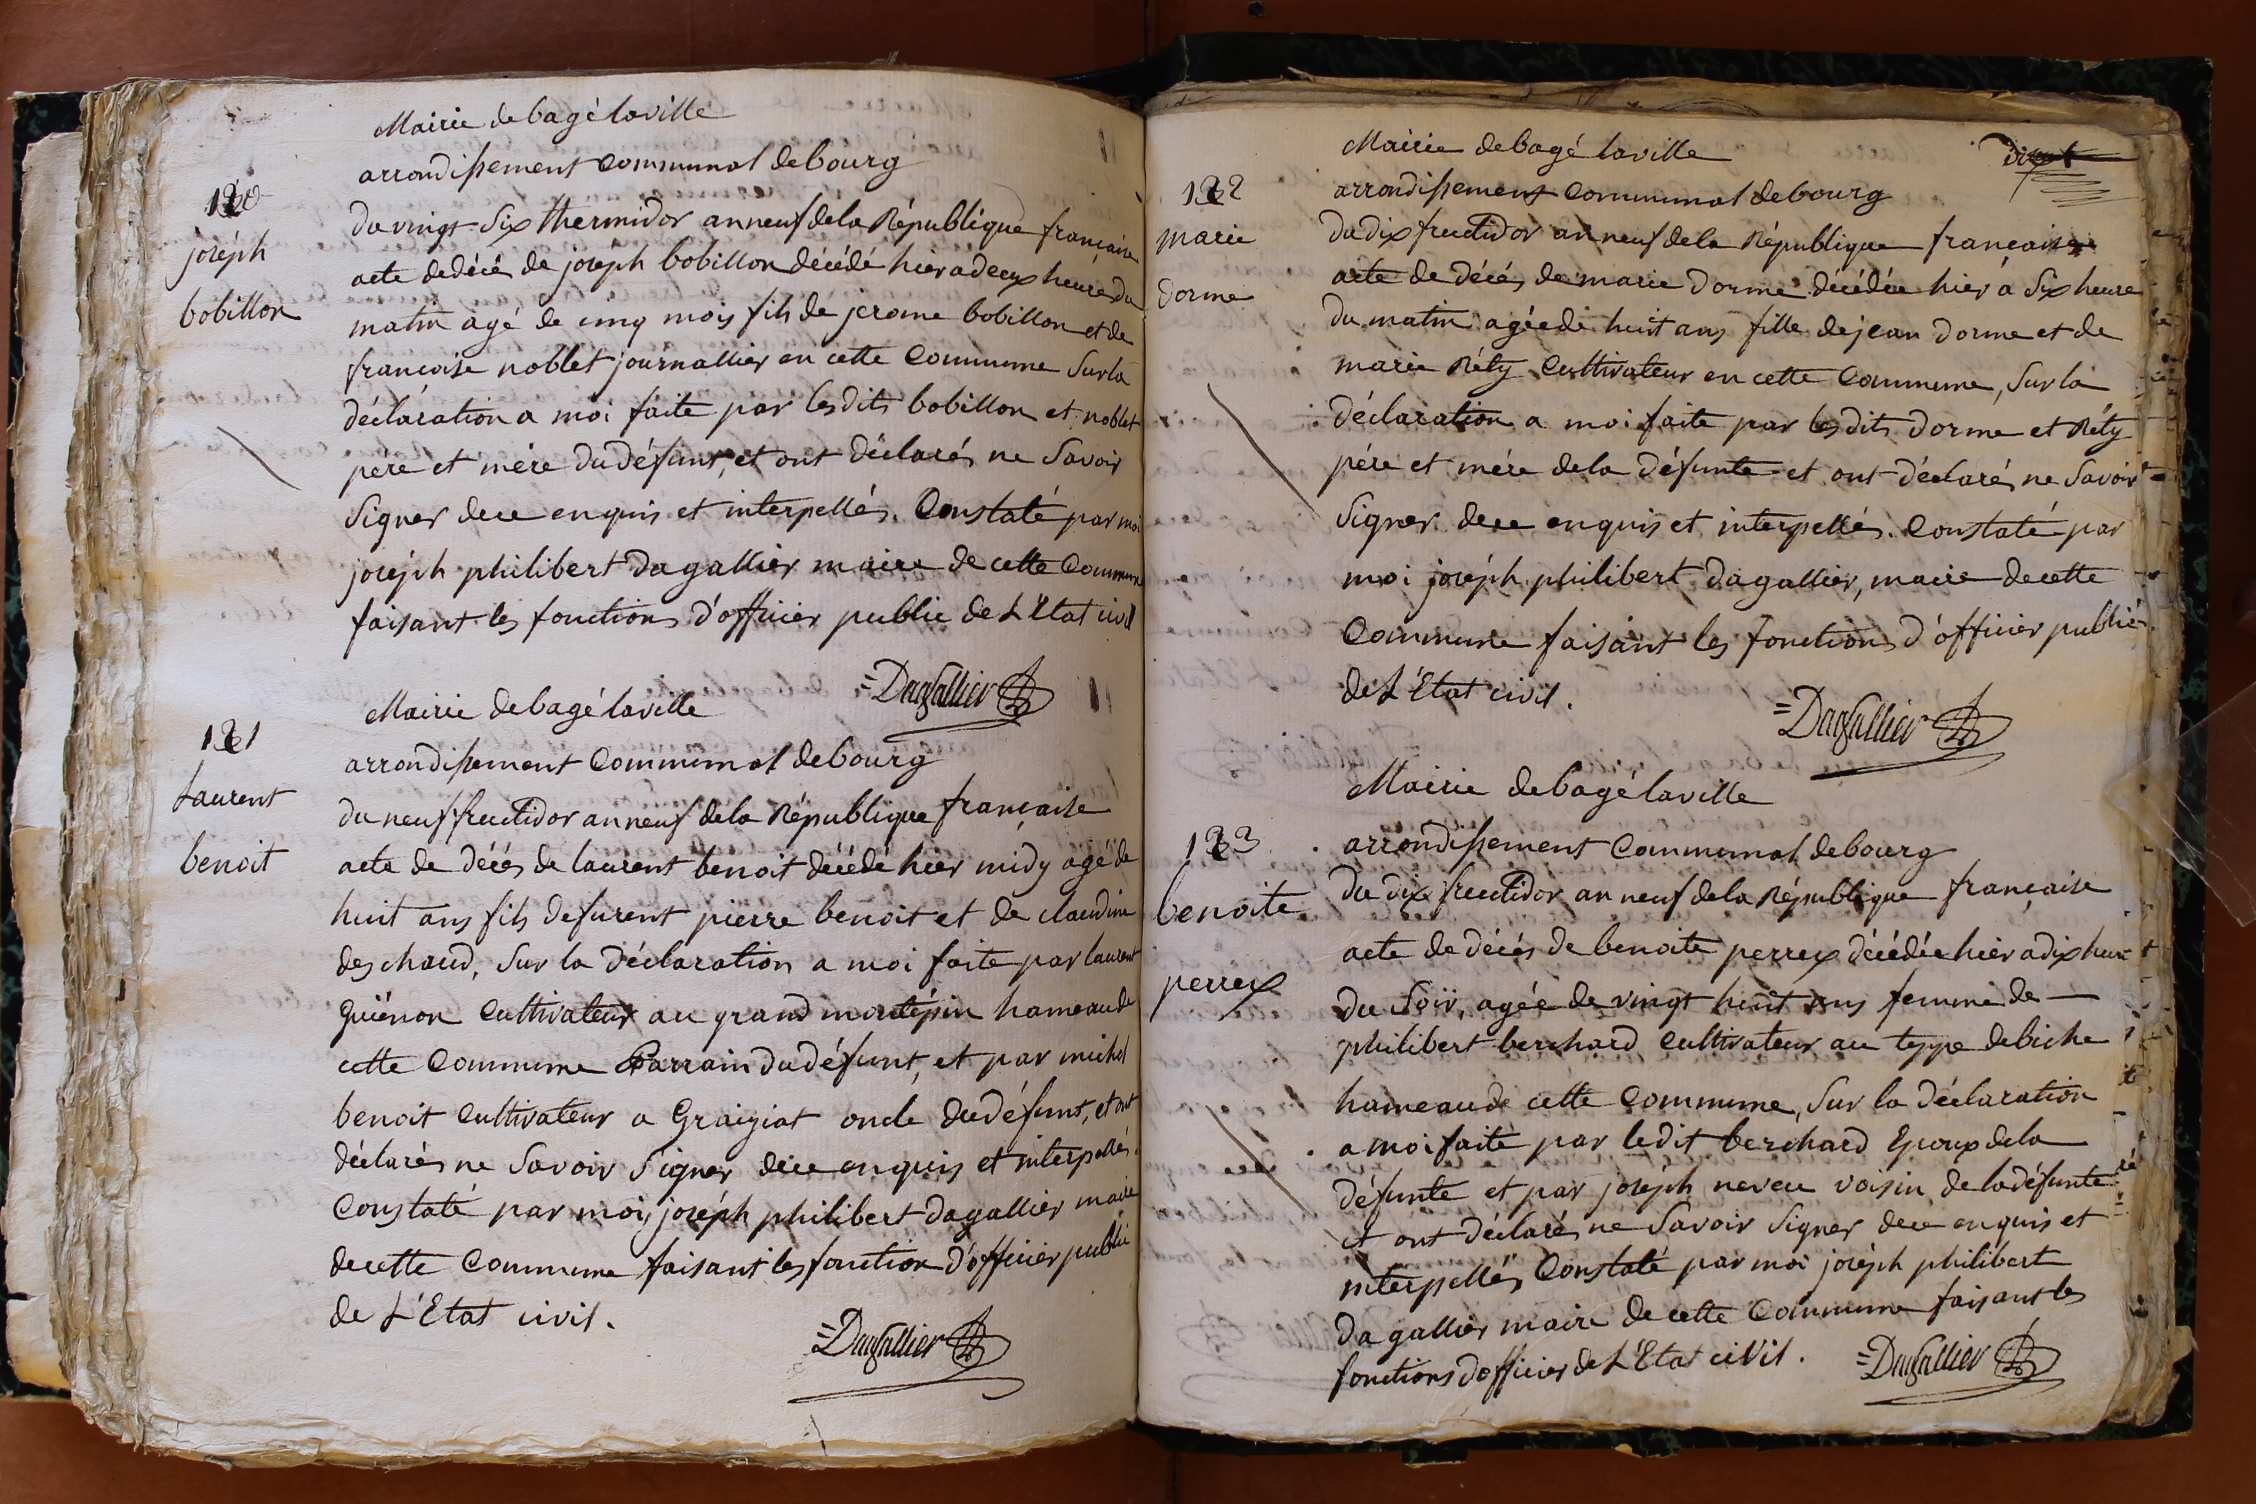 Mairie de bagé laville
arrondissement communal de bourg
120
joséph
bobillon
du vingt six thermidor an neuf de la République française
acte de décé de joséph bobillon décédé hier a deux heure du
matin agé de cinq mois fils de jerome bobillon et de
francoise noblet journallier en cette Commune Sur la
déclaration a moi faite par lesdits bobillon et noblet
pére et mére du défunt, et ont déclarés ne Savoir
Signer de ce enquis et interpellés. Constaté par moi
joséph philibert dagallier maire de cette Commune
faisant les fonctions d'officier public de L'Etat civil
Dagallier
121
Laurent
benoit
Mairie de bagé laville
arrondissement Communal de bourg
du neuf fructidor an neuf de la République française
acte de décés de laurent benoit décédé hier midy agé de
huit ans fils defurent pierre benoit et de claudine
deschaud, Sur la déclaration a moi faite par laurent
Guënon Cultivateur au grand montépin hameau de
cette Commune Parrain du défunt, et par michel
benoit Cultivateur a Graigiat oncle du défunt, et ont
déclarés ne Savoir Signer de ce enquis et interpellés.
Constaté par moi, joséph philibert dagallier maire
de cette Commune faisant les fonction d'officier public
de L'Etat civil.
Dagallier
Mairie de bagé laville
122
marie
dorme
arrondissement Communal de bourg
du dix fructidor an neuf de la République française
acte de décés de marie dorme décédée hier à Six heure
du matin agée de huit ans fille de jean dorme et de
marie Réty Cultivateur en cette Commune, Sur la
déclaration a moi faite par lesdits dorme et Réty
pére et mére de la défunte et ont déclarés ne Savoir
Signer de ce enquis et interpellés. Constaté par
moi joséph philibert dagallier, maire de cette
Commune faisant les fonctions d'officier public
de L'Etat civil.
Dagallier
Mairie de bagé laville
123
benoite
perrex
arrondissement Communal de bourg
du dix fructidor an neuf de la République française
acte de décés de benoite perrex décédée hier a dix heure
du Soir, agée de vingt huit ans femme de
philibert berchard Cultivateur au teppe de biche
hameau de cette Commune, Sur la déclaration
a moi faite par ledit berchard Epoux de la
défunte et par joséph neveu voisin de la défunte
et ont déclarés ne Savoir Signer de ce enquis et
interpellés Constaté par moi joséph philibert
dagallier maire de cette Commune faisant les
fonctions d'officier de L'Etat civil.
Dagallier